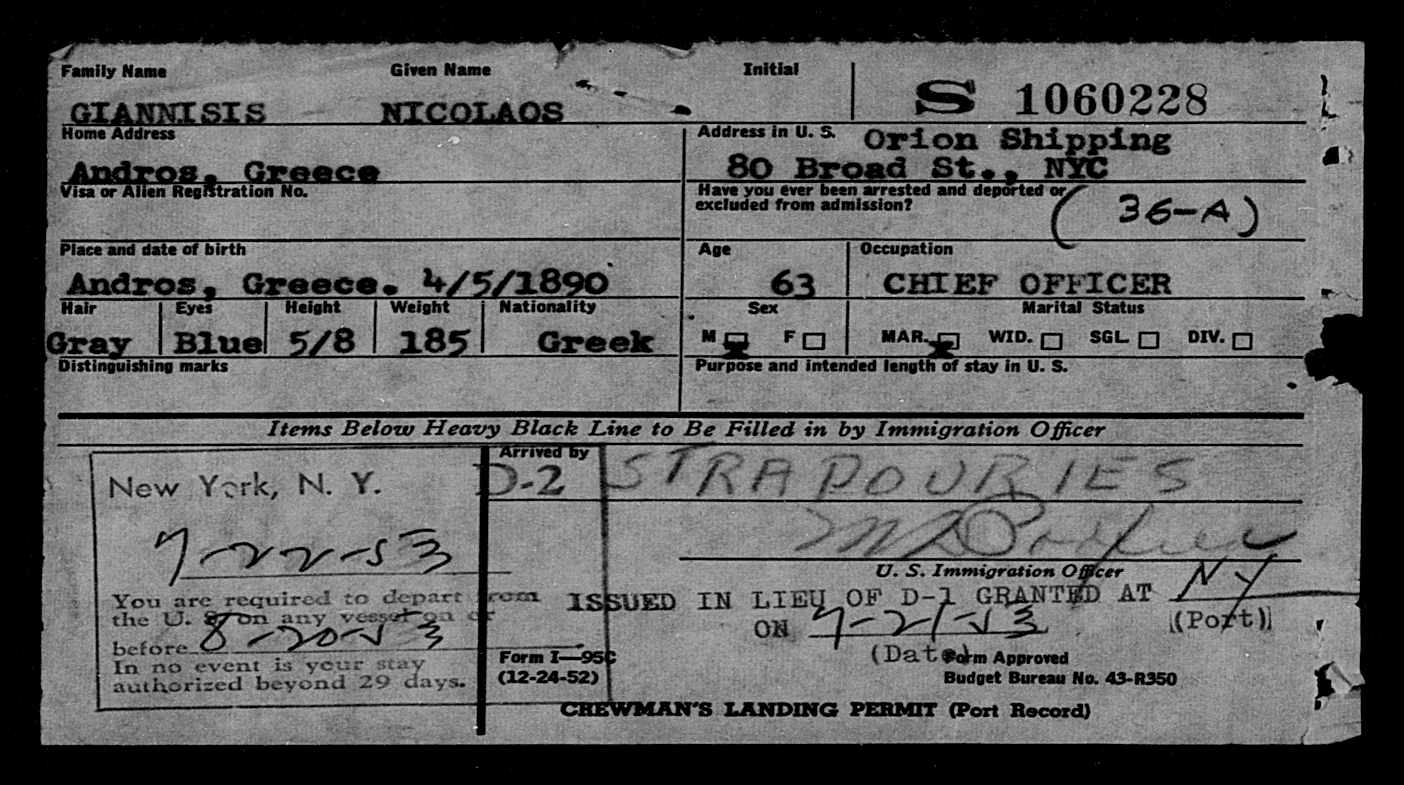 Family Name Given Name Initial
GIANNISIS NICOLAOS S 1060228
Home Address
Andros, Greece
Address in U. S. Orion Shipping
80 Broad St., NYC
Visa or Alien Registration No.
Have you ever been arrested and deported or
excluded from admission?
(36-A)
Place and date of birth
Andros, Greece. 4/5/1890
Age Occupation
63 CHIEF OFFICER
Hair Eyes Height Weight Nationality
Gray Blue 5/8 185 Greek
Sex Marital Status
M F MAR. WID. SGL. DIV.
Distinguishing marks
Purpose and intended length of stay in U. S.
Items Below Heavy Black Line to Be Filled in by Immigration Officer
New York, N. Y.
7-22-53
You are required to depart from
the U. S. on any vessel on or
before 8-20-53
In no event is your stay
authorized beyond 29 days.
Arrived by
D-2 STRAPOURIES
U. S. Immigration Officer
ISSUED IN LIEU OF D-1 GRANTED AT NY
(Port)
ON 7-21-53
(Date)
Form I—95C
(12-24-52)
Form Approved
Budget Bureau No. 43-R350
CREWMAN'S LANDING PERMIT (Port Record)